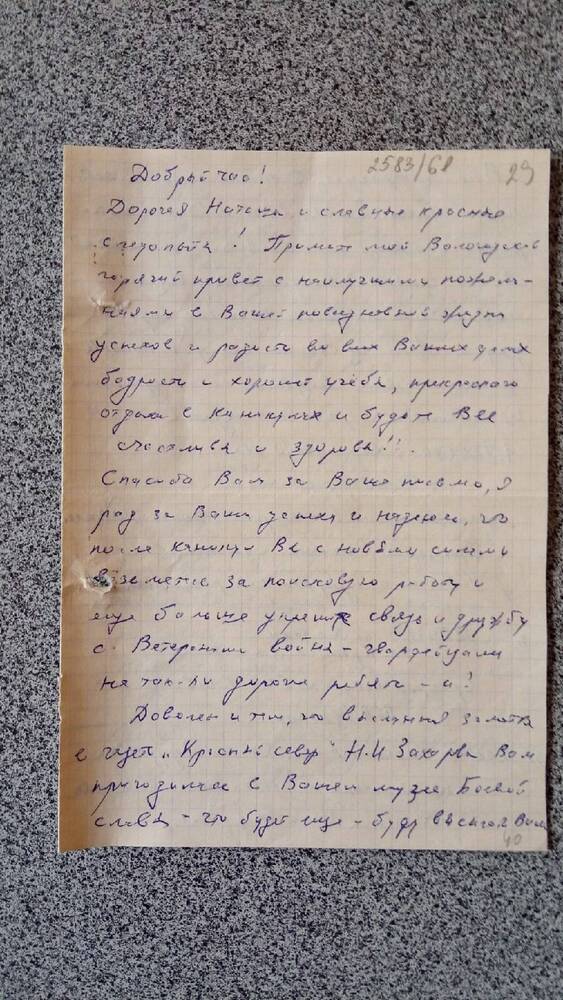 2583/61
29
Добрый час!
Дорогая Наташа и славные красные
следопыты! Примите мой Вологодский
горячий привет с наилучшими пожела-
ниями в Вашей повседневной жизни
успехов и радости во всех Ваших делах
бодрости и хорошей учебы, прекрасного
отдыха в каникулах и будьте Все
счастливы и здоровы!!.
Спасибо Вам за Ваше письмо, я
рад за Ваши успехи и надеюсь, что
после каникул Вы с новыми силами
возьметесь за поисковую работу и
еще больше укрепите связь и дружбу
с Ветеранами войны - гвардейцами
не так-ли дорогие ребята - а?
Доволен и тем, что высланная заметка
в газете "Красный север" Н.И Захарова Вам
пригодилась в Вашем музее Боевой
славы - что будет еще - буду высылать Вам
40